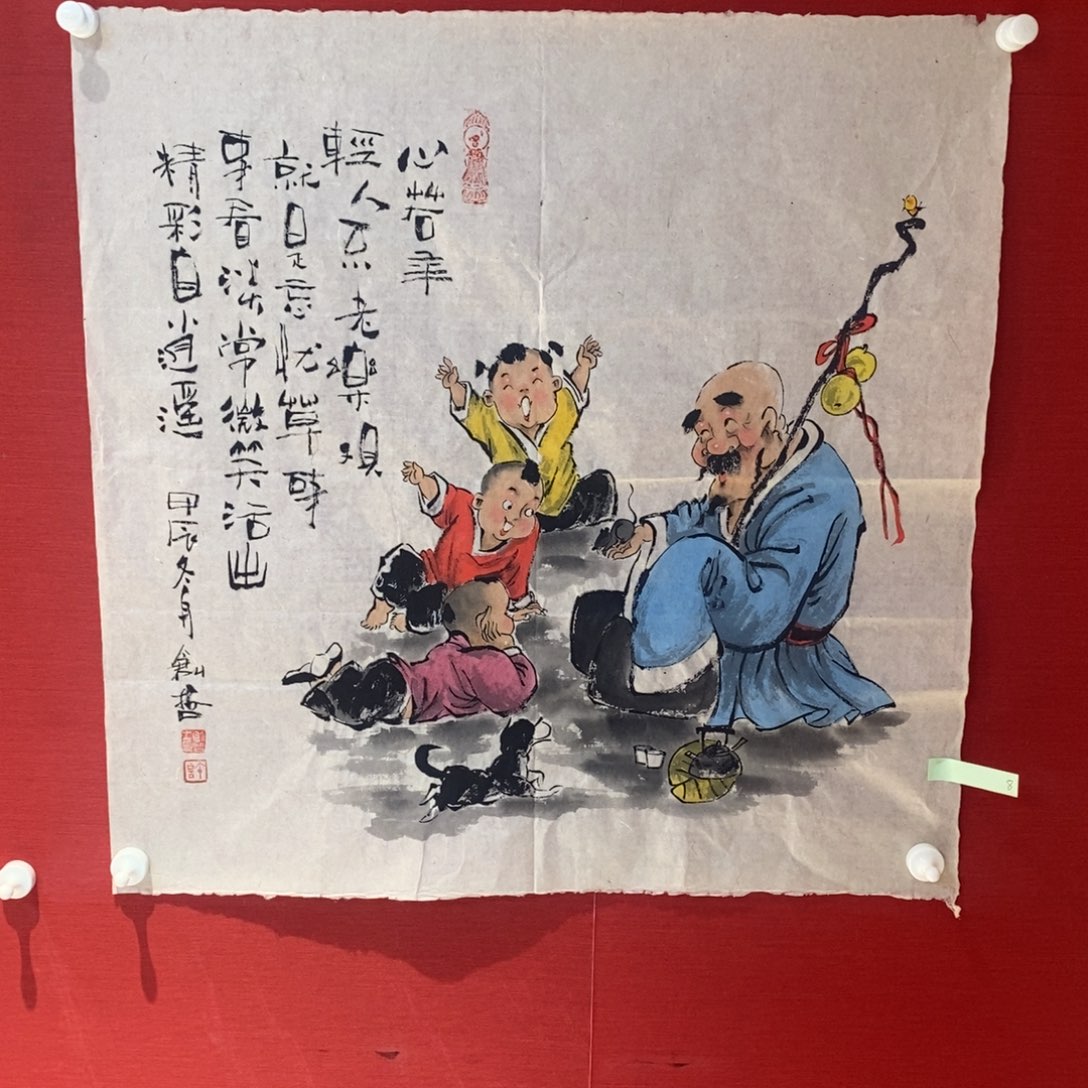 心若年
輕人不老樂观
就是忘忧草时
事看淡常微笑活出
精彩自逍遥 甲辰冬月